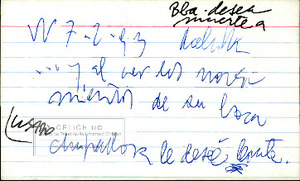 Bba. desea
muerte a
W 7-2-93
... y al ver los movi
mientos de su boca
chupadora le deseé
Lusano
CELICH UC